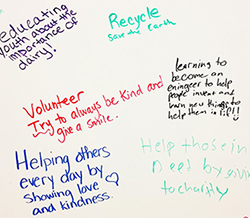 educating
youth about the
importance of
dairy!
Recycle
save the earth
Volunteer
Try to always be kind and
give a smile.
learning to
become an
engineer to help
people invent and
learn new things to
help them in life!!
Helping others
every day by
showing love
and kindness.
Help those in
need by giving
to charity